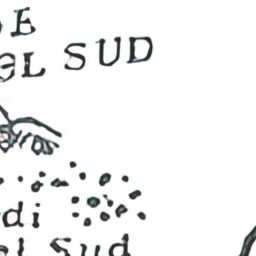 E
EL SUD
di
el Sud